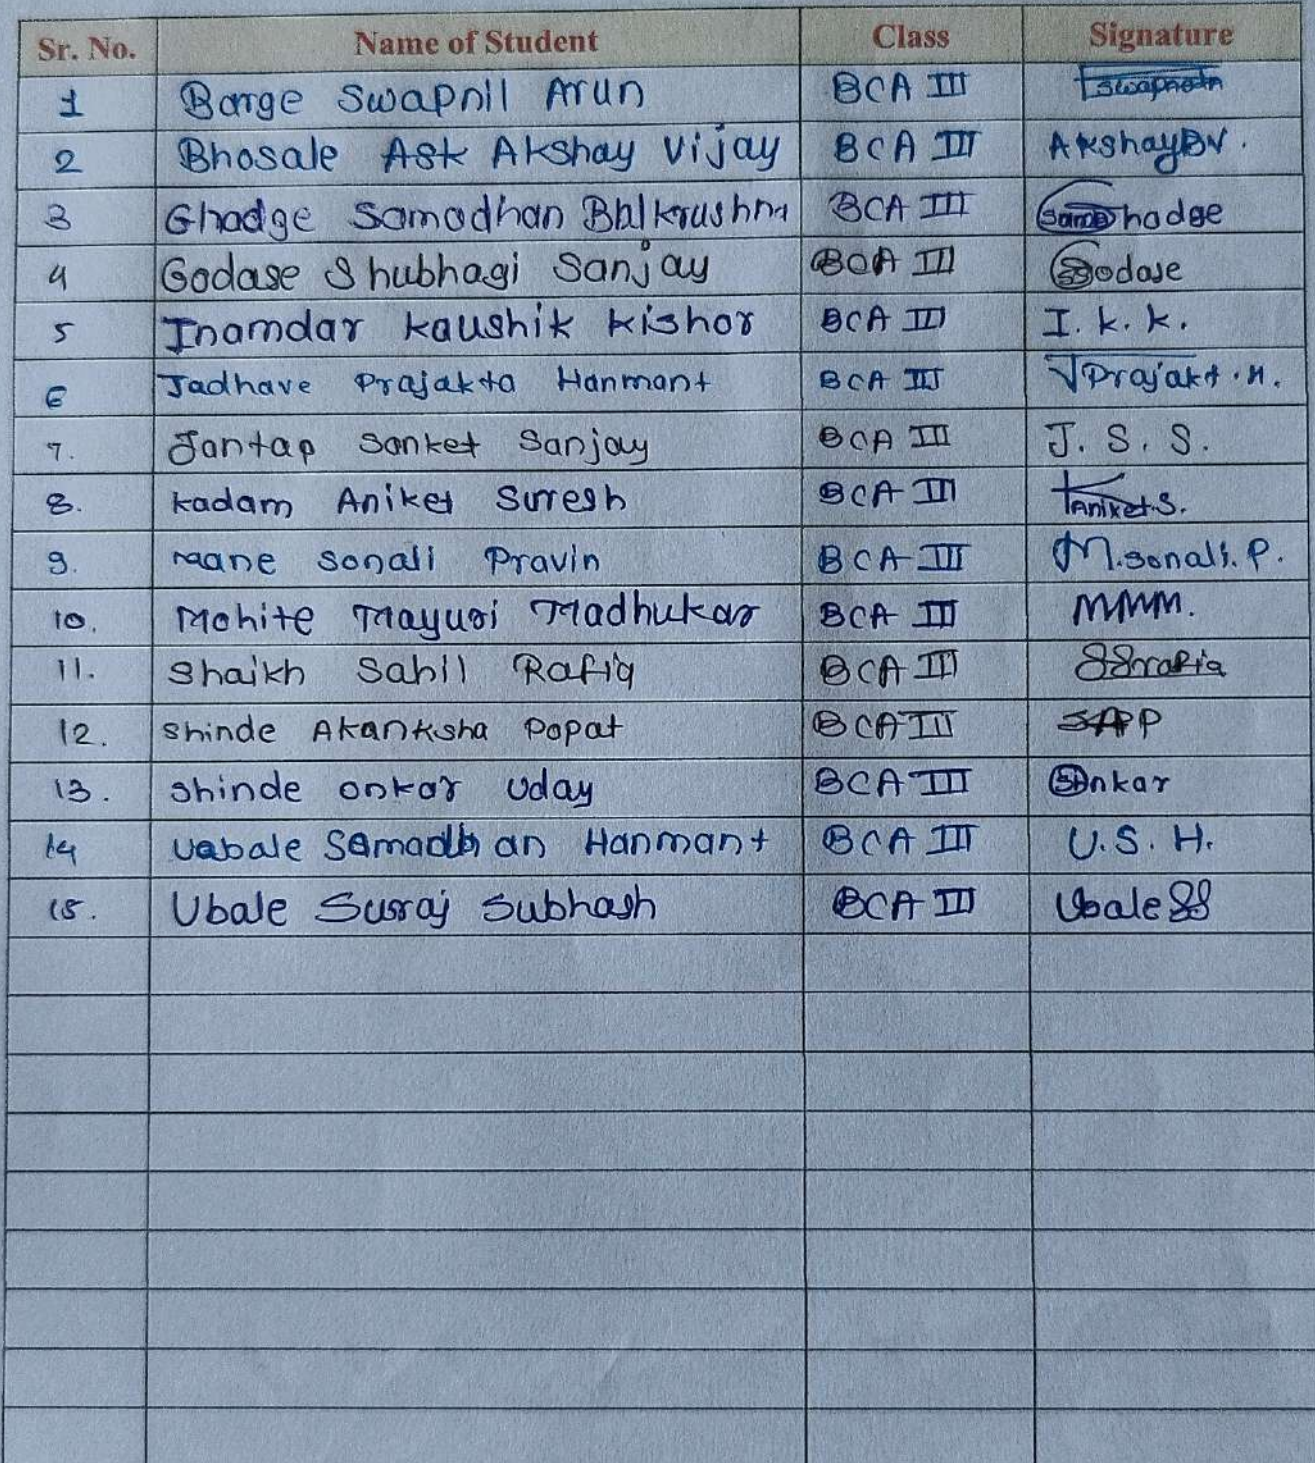 Sr. No. Name of Student Class Signature
1 Barge Swapnil Arun BCA III
2 Bhosale Ask Akshay Vijay BCA III AkshayBV.
3 Ghadge Samadhan Balkrushna BCA III hadge
4 Godase Shubhagi Sanjay BCA III Godase
5 Inamdar kaushik kishor BCA III I. k. k.
6 Jadhave Prajakta Hanmant BCA III Prajakt.H.
7. Jantap Sanket Sanjay BCA III J. S. S.
8. kadam Aniket Suresh BCA III Aniket.S.
9. Mane Sonali Pravin BCA III M.sonali.P.
10. Mohite Mayuri Madhukar BCA III MMM.
11. Shaikh Sahil Rafiq BCA III
12. Shinde Akanksha Popat BCA III SAP
13. Shinde Onkar Uday BCA III Onkar
14 Uabale Samadhan Hanmant BCA III U.S.H.
15. Ubale Suraj Subhash BCA III Ubale SS